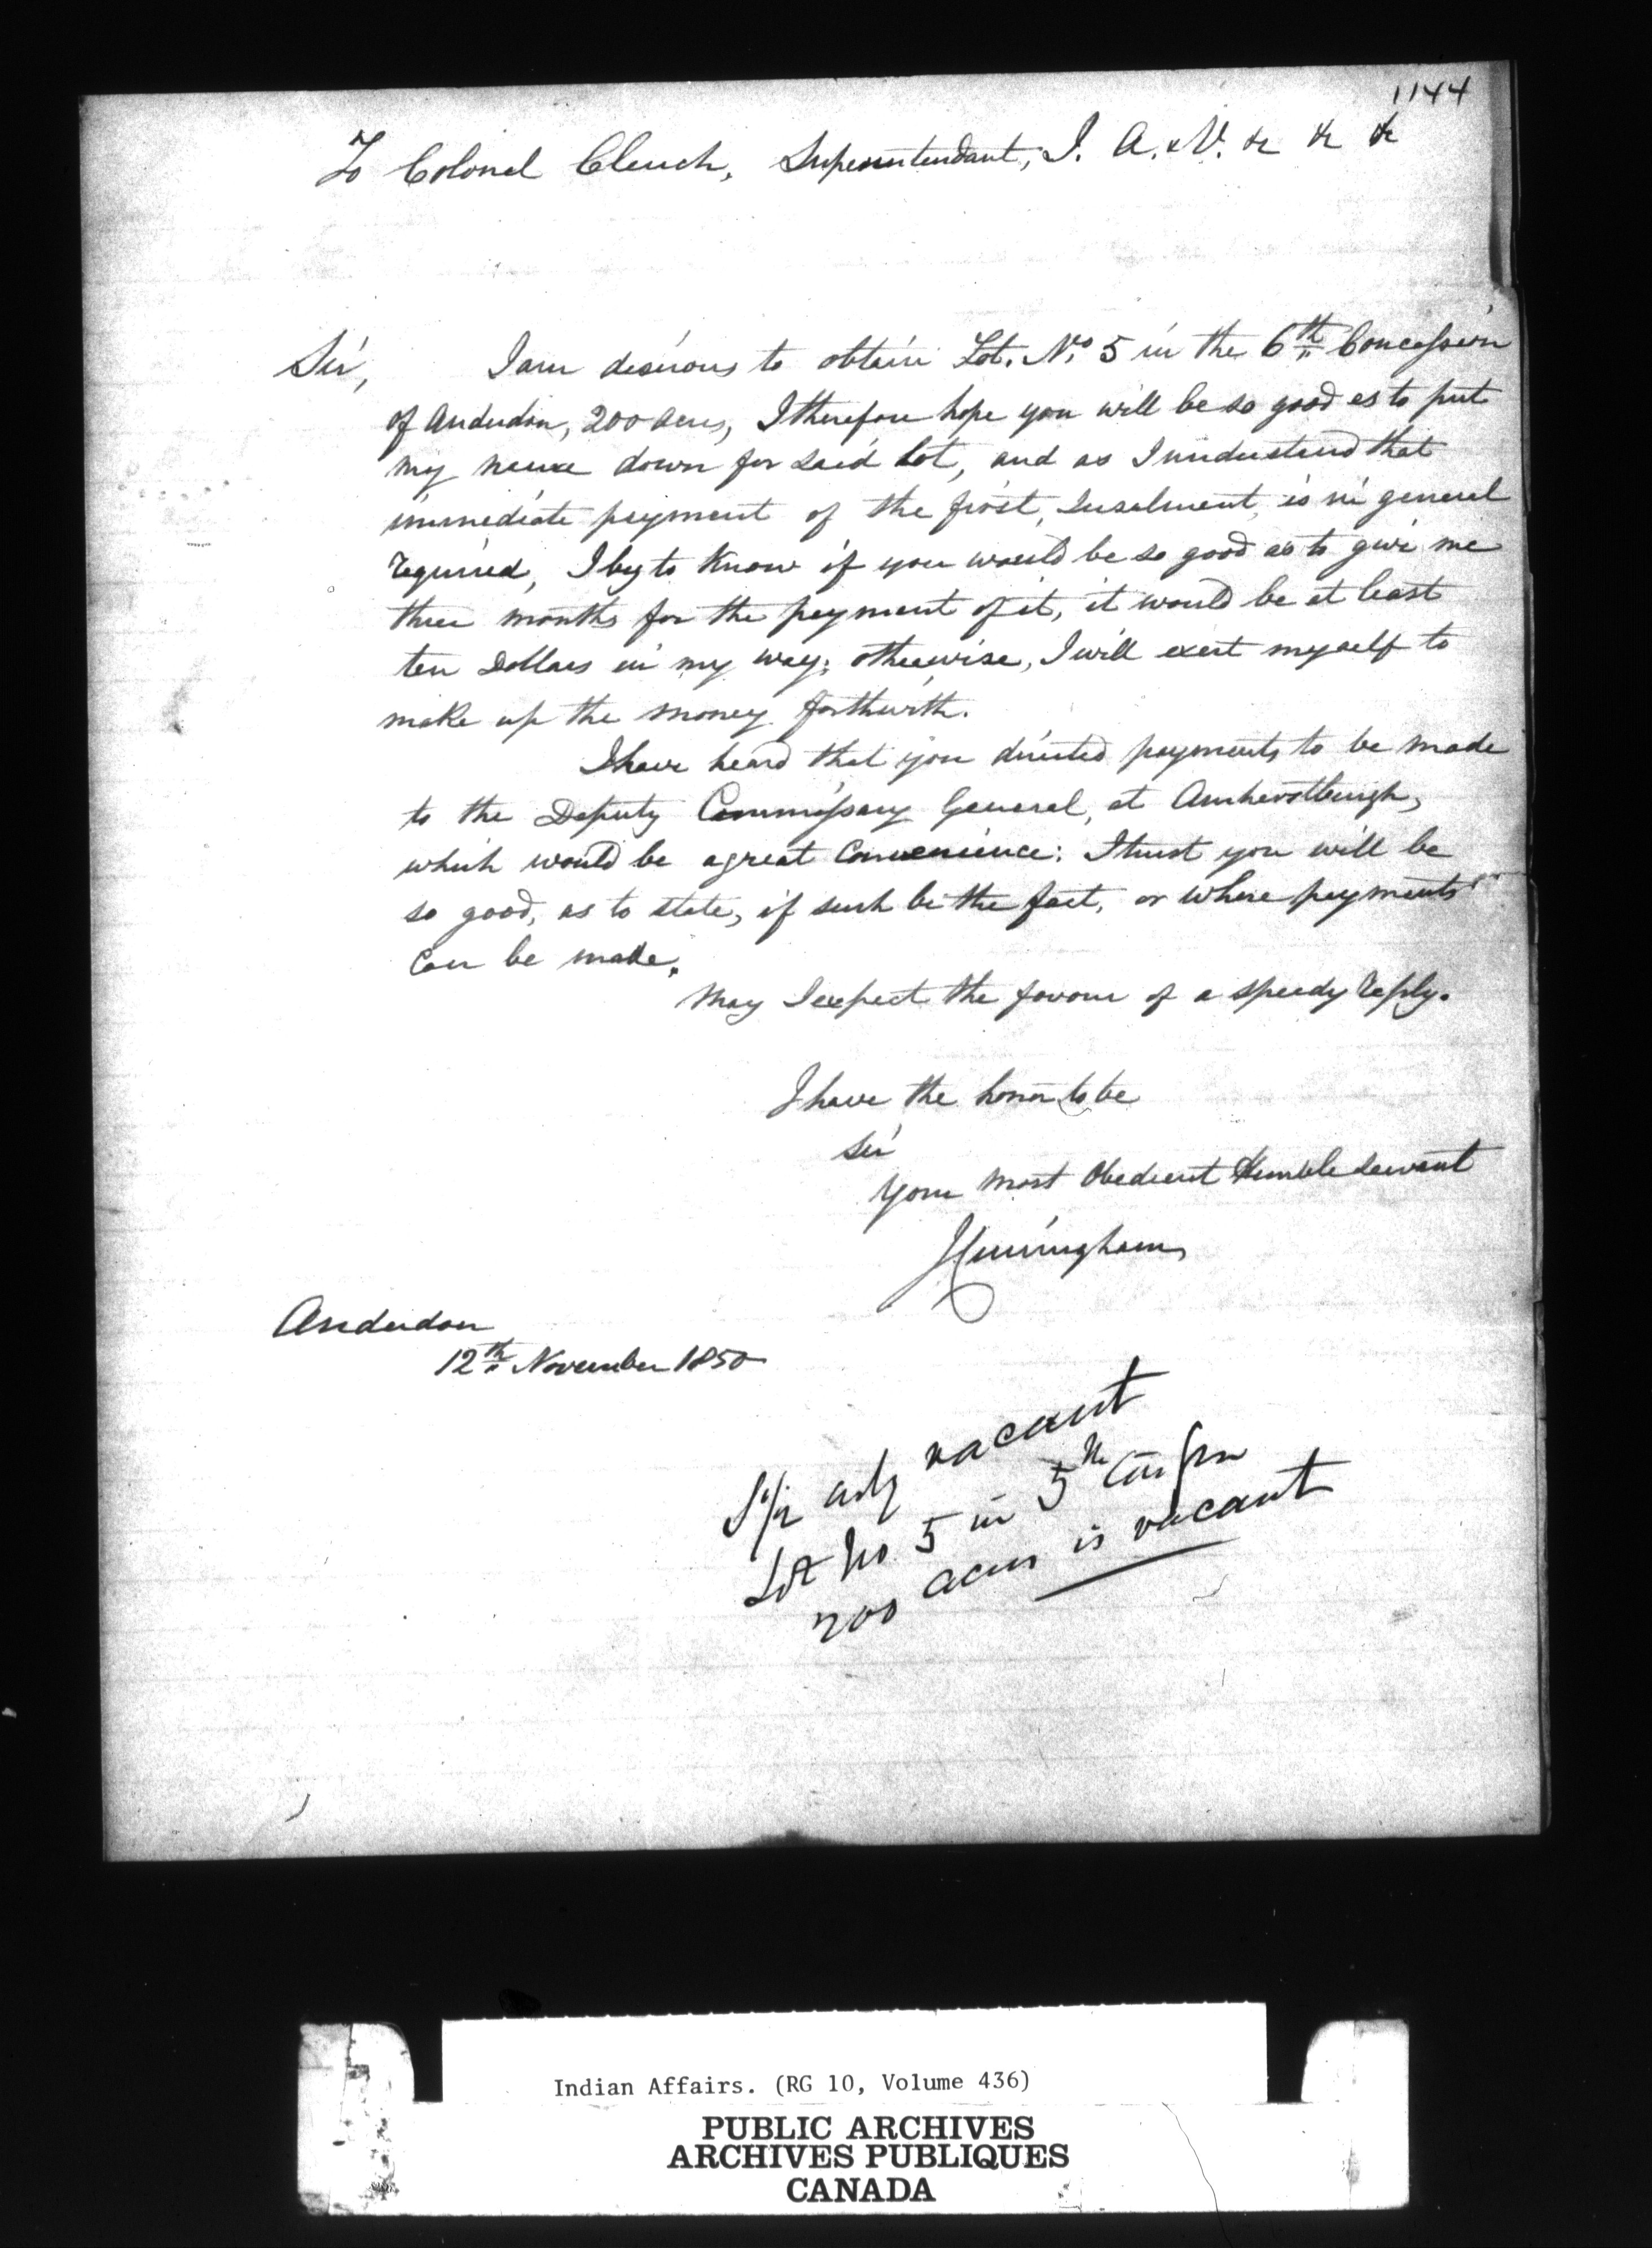 1144
To Colonel Clench, Superintendant, I. A. & V. &c &c &c
Sir, I am desirous to obtain Lot. No. 5 in the 6th Concession
of Anderdon, 200 acres, I therefore hope you will be so good as to put
my name down for said lot, and as I understand that
immediate payment of the first, Insalment, is in general
required, I beg to know if you would be so good as to give me
three months for the payment of it, it would be at least
ten Dollars in my way; otherwise, I will exert myself to
make up the money forthwith.
I have heard that you directed payments to be made
to the Deputy Commissary General, at Amherstburgh,
which would be a great Convenience: I trust you will be
so good, as to state, if such be the fact, or where payments
can be made.
May I expect the favour of a speedy reply.
I have the honor to be
Sir
Your most Obedient Humble Servant
J Cuningham
Anderdon
12th November 1850
S 1/2 only vacant
Lot No 5 in 5th Con
200 acres is vacant
Indian Affairs. (RG 10, Volume 436)
PUBLIC ARCHIVES
ARCHIVES PUBLIQUES
CANADA